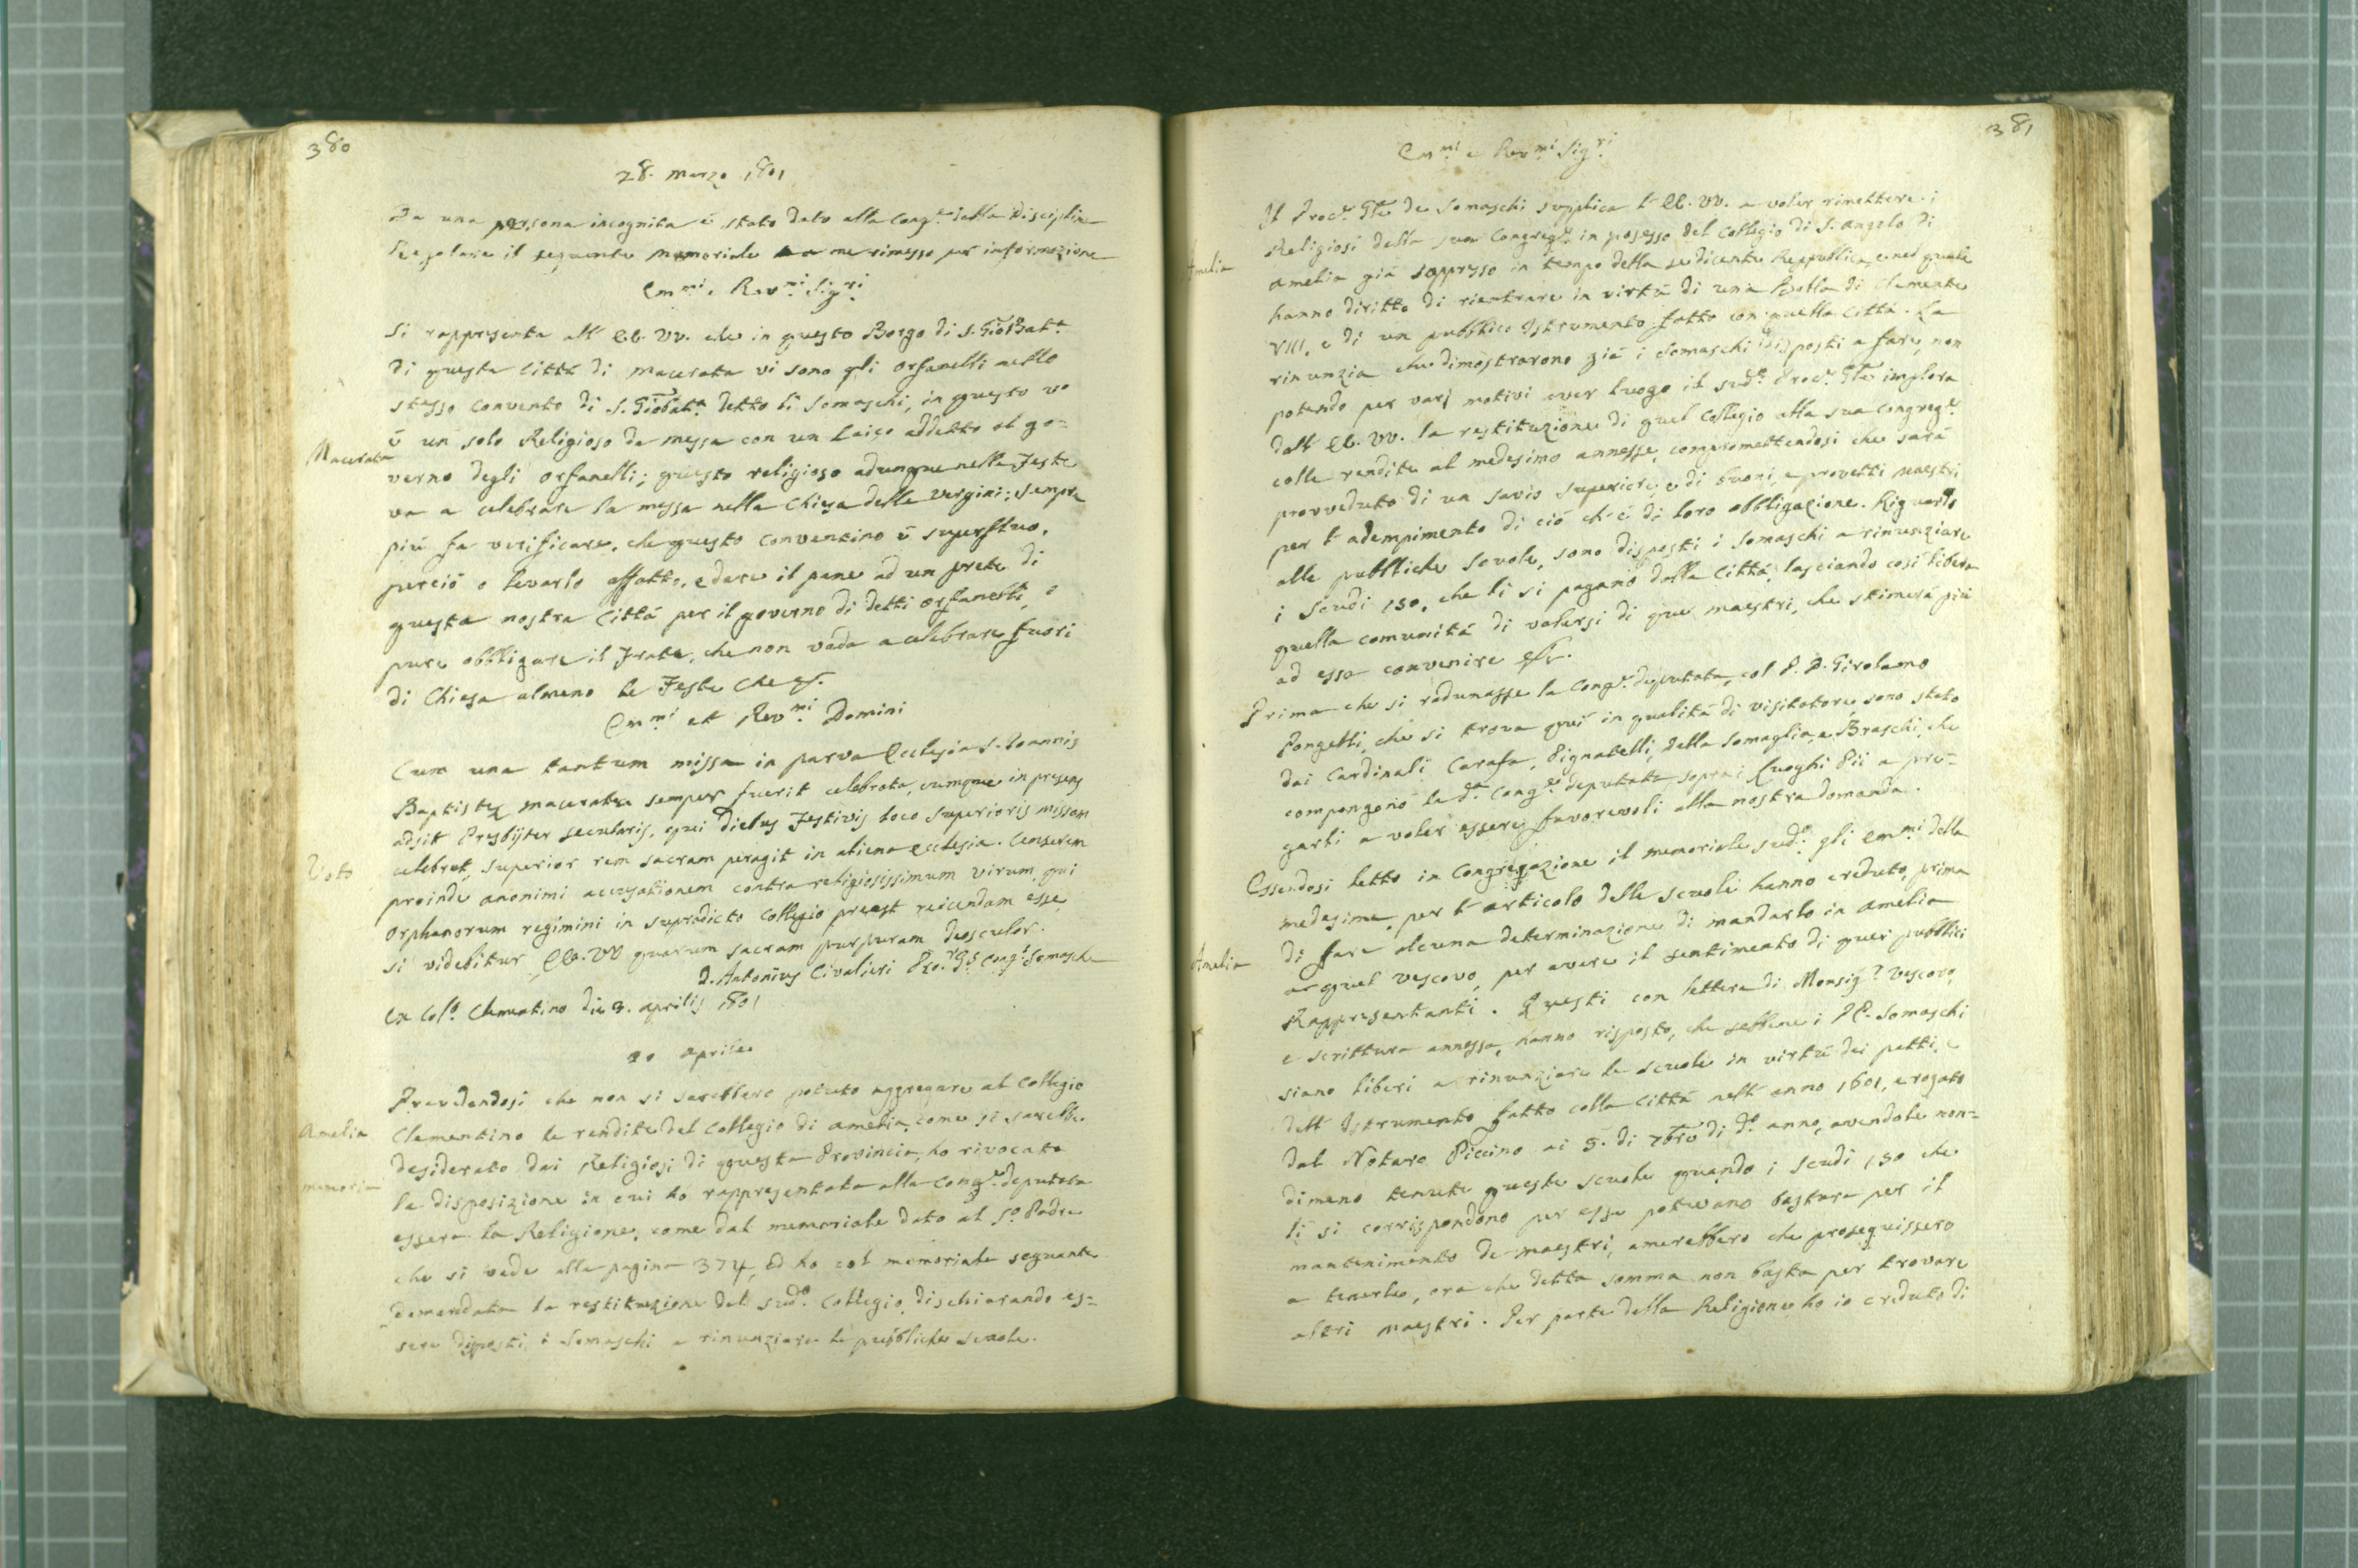 380
28. Marzo 1801
Da una persona incognita è stato dato alla Cong.e della Disciplina
Regolare il seguente Memoriale a me rimesso per informazione
Em.mi e Rev.mi Sig.ri
Si rappresenta all' EE. VV. che in questo Borgo di S. Gio Bat.a
di questa Città di Macerata vi sono gli Orfanelli nello
stesso convento di S. Gio Bat.a detto li Somaschi, in questo v'
Macerata
è un solo Religioso da messa con un Laico addetto al go=
verno degli Orfanelli; questo religioso adunque nelle Feste
va a celebrare la messa nella Chiesa delle Vergini; sempre
più fa verificare, che questo conventino è superfluo,
perciò o levarlo affatto, e dare il pane ad un prete di
questa nostra Città per il governo di detti Orfanelli, o
pure obbligare il Frate, che non vada a celebrare fuori
di Chiesa almeno le Feste Che
Em.mi et Rev.mi Domini
Cum una tantum missa in parva Ecclesia S. Joannis
Baptistę Maceratę semper fuerit celebrata, cumque in presens
adsit Presbijter secularis, qui diebus Festivis loco Superioris missam
Voto
celebret, Superior rem sacram peragit in aliena Ecclesia. Censerem
proinde anonimi accusationem contra religiosissimum virum, qui
Orphanorum regimini in supradicto Collegio preest reiiciendam esse,
si videbitur EE. VV quarum sacram purpuram deosculor.
D. Antonius Civalieri Pro.r G.s Cong.s Somasche
Ex Col.o Clementino die 3. aprilis 1801
20 Aprile
Prevedendosi che non si sarebbero potute aggregare al Collegio
Amelia
Clementino le rendite del Collegio di Amelia, come si sarebbe
desiderato dai Religiosi di questa Provincia, ho rivocata
memoria
la disposizione in cui ho rappresentata alla Cong.e deputata
essere la Religione, come dal memoriale dato al S.o Padre
che si vede alla pagina 374, ed ho col memoriale seguente
domandata la restituzione del sud.o Collegio, dischiarando es=
sere disposti i Somaschi a rinunziare le pubbliche scuole.
381
Em.mi e Rev.mi Sig.ri
Il Proc.e Gle de Somaschi supplica l' EE. VV. a voler rimettere i
Amelia
Religiosi della sua Congreg.e in possesso del Collegio di S. Angelo di
Amelia già soppresso in tempo della sedicente Reppublica, e nel quale
hanno diritto di rientrare in virtù di una Bolla di Clemente
VIII, e di un pubblico Istrumento fatto con quella Città. La
rinunzia che dimostrarono già i Somaschi disposti a fare, non
potendo per varj motivi aver luogo il sud.o Proc.e Gle implora
dall' EE. VV. la restituzione di quel Collegio alla sua Congreg.e
colle rendite al medesimo annesse, compromettendosi che sarà
provveduto di un savio superiore, e di buoni, e provetti Maestri
per l' adempimento di ciò ch' è di loro obbligazione. Riguardo
alle pubbliche Scuole, sono disposti i Somaschi a rinunziare
i Scudi 150, che li si pagano dalla Città, lasciando così libera
quella comunità di valersi di que maestri, che stimerà più
ad essa convenire
Prima che si radunasse la Cong.e deputata, col P. D. Girolamo
Pongelli, che si trova quì in qualità di visitatore, sono stato
dai Cardinali Carafa, Pignatelli, della Somaglia, e Braschi, che
compongono la d.a Cong.e deputata sopra i Luoghi Pii a pre=
garli a voler essere favorevoli alla nostra domanda.
Essendosi letto in Congregazione il memoriale sud.o gli Em.mi della
medesima, per l' articolo delle scuole hanno creduto, prima
Amelia
di fare alcuna determinazione di mandarlo in Amelia
a quel vescovo, per avere il sentimento di quei pubblici
Rappresentanti. Questi con lettera di Monsig.r Vescovo,
e scrittura annessa, hanno risposto, che sebbene i PP. Somaschi
siano liberi a rinunziare le scuole in virtù dei patti, e
dell' Istrumento fatto colla Città nell' anno 1601, e rogato
dal Notaro Piccino ai 5. di 7bre di d.o anno, avendole non=
dimeno tenute queste scuole quando i Scudi 150 che
li si corrispondono per esse potevano bastare per il
mantenimento de Maestri, amerebbero che proseguissero
a tenerle, ora che detta somma non basta per trovare
altri Maestri. Per parte della Religione ho io creduto di